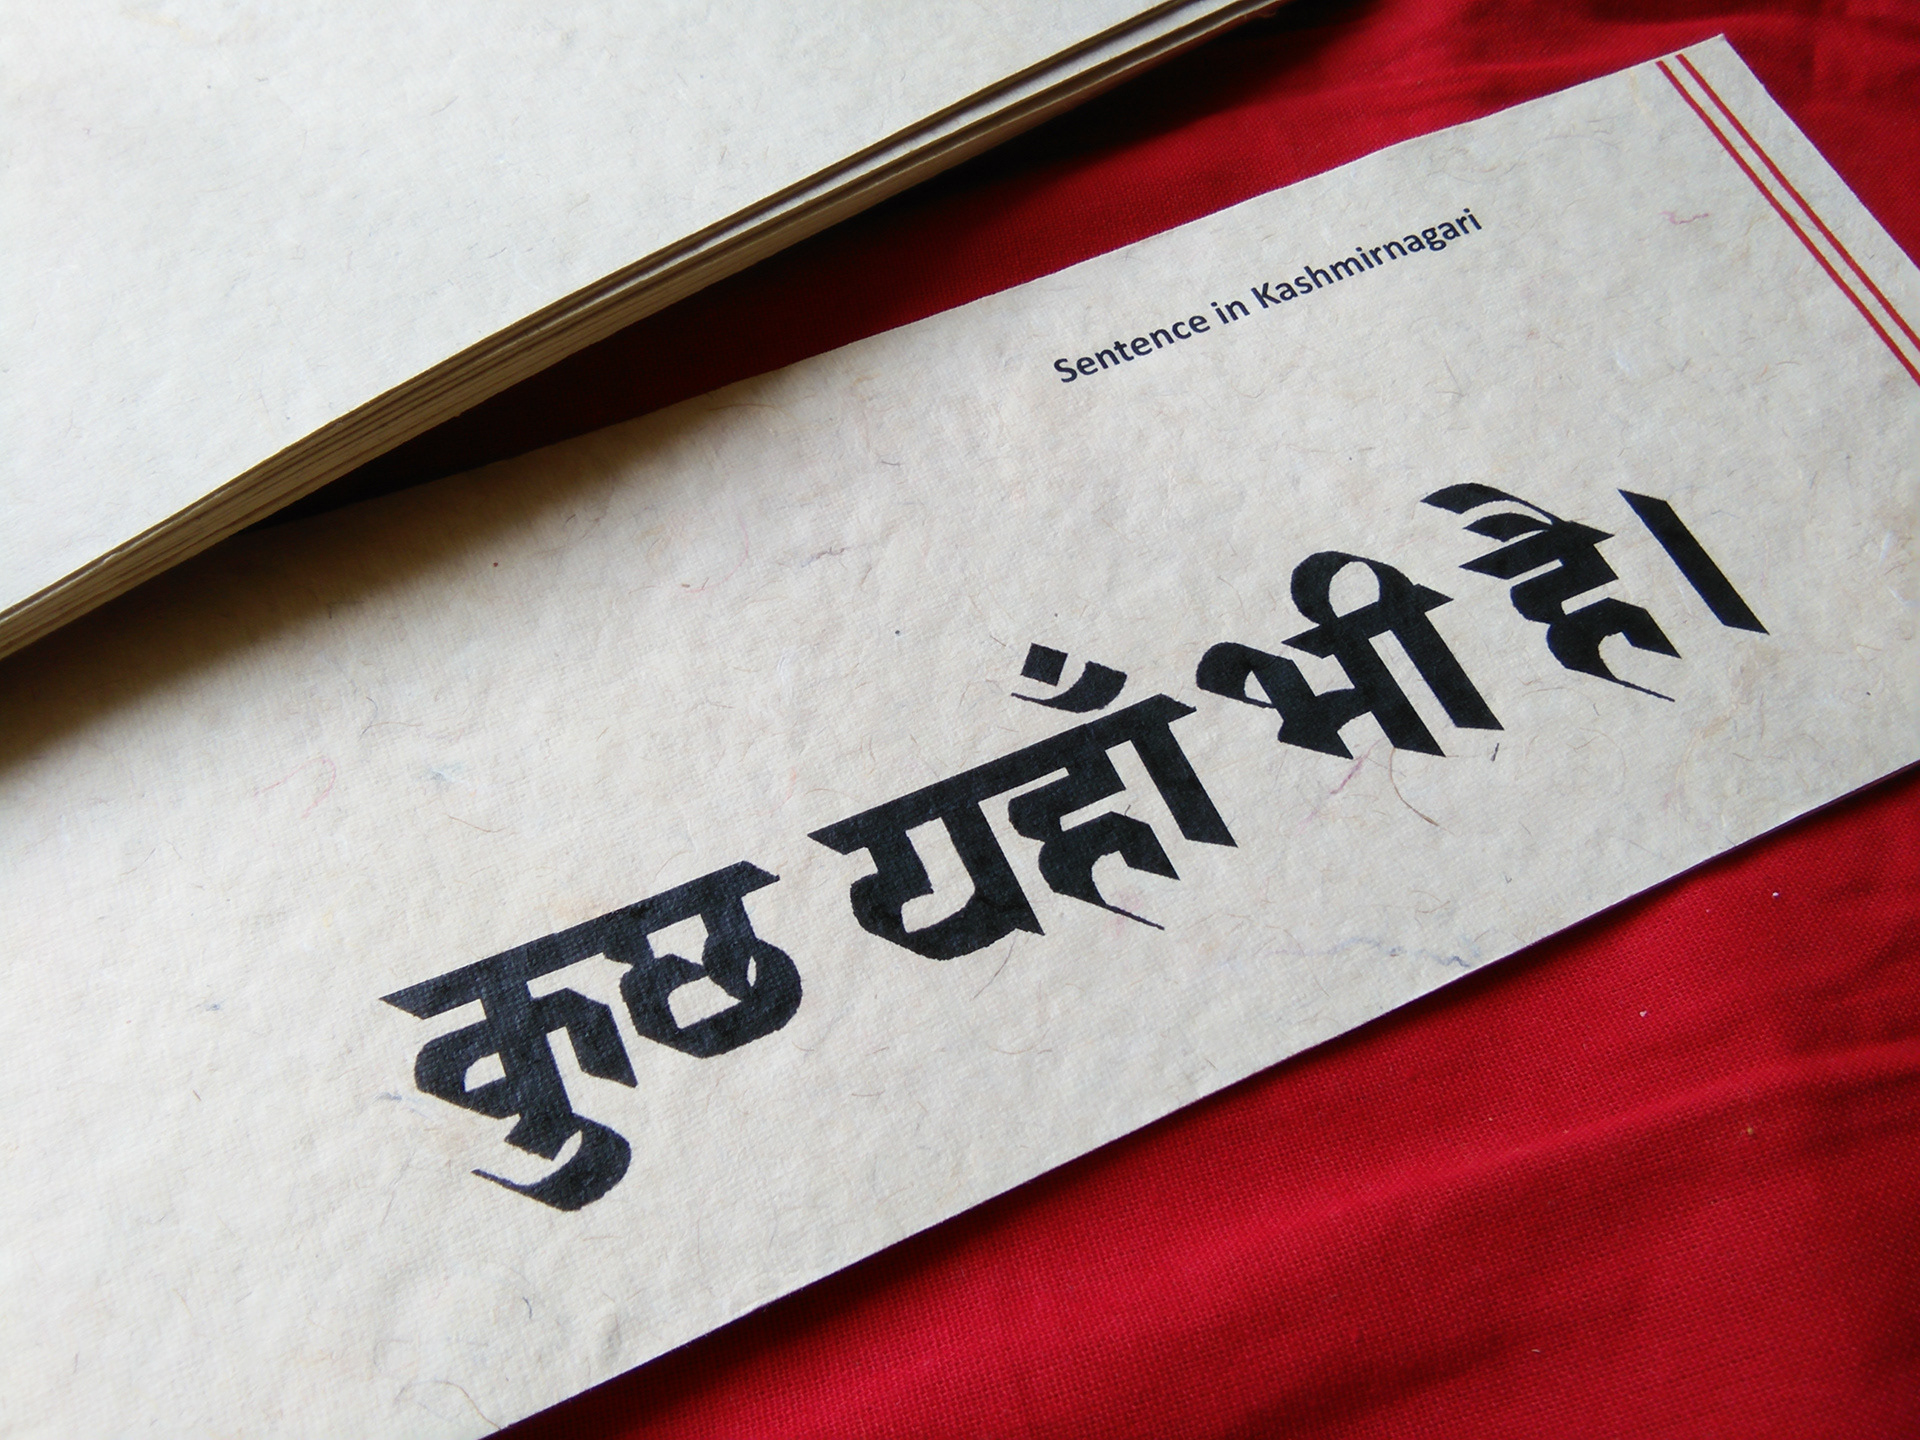 Sentence in Kashmirnagari
कुछ यहाँ भी है।